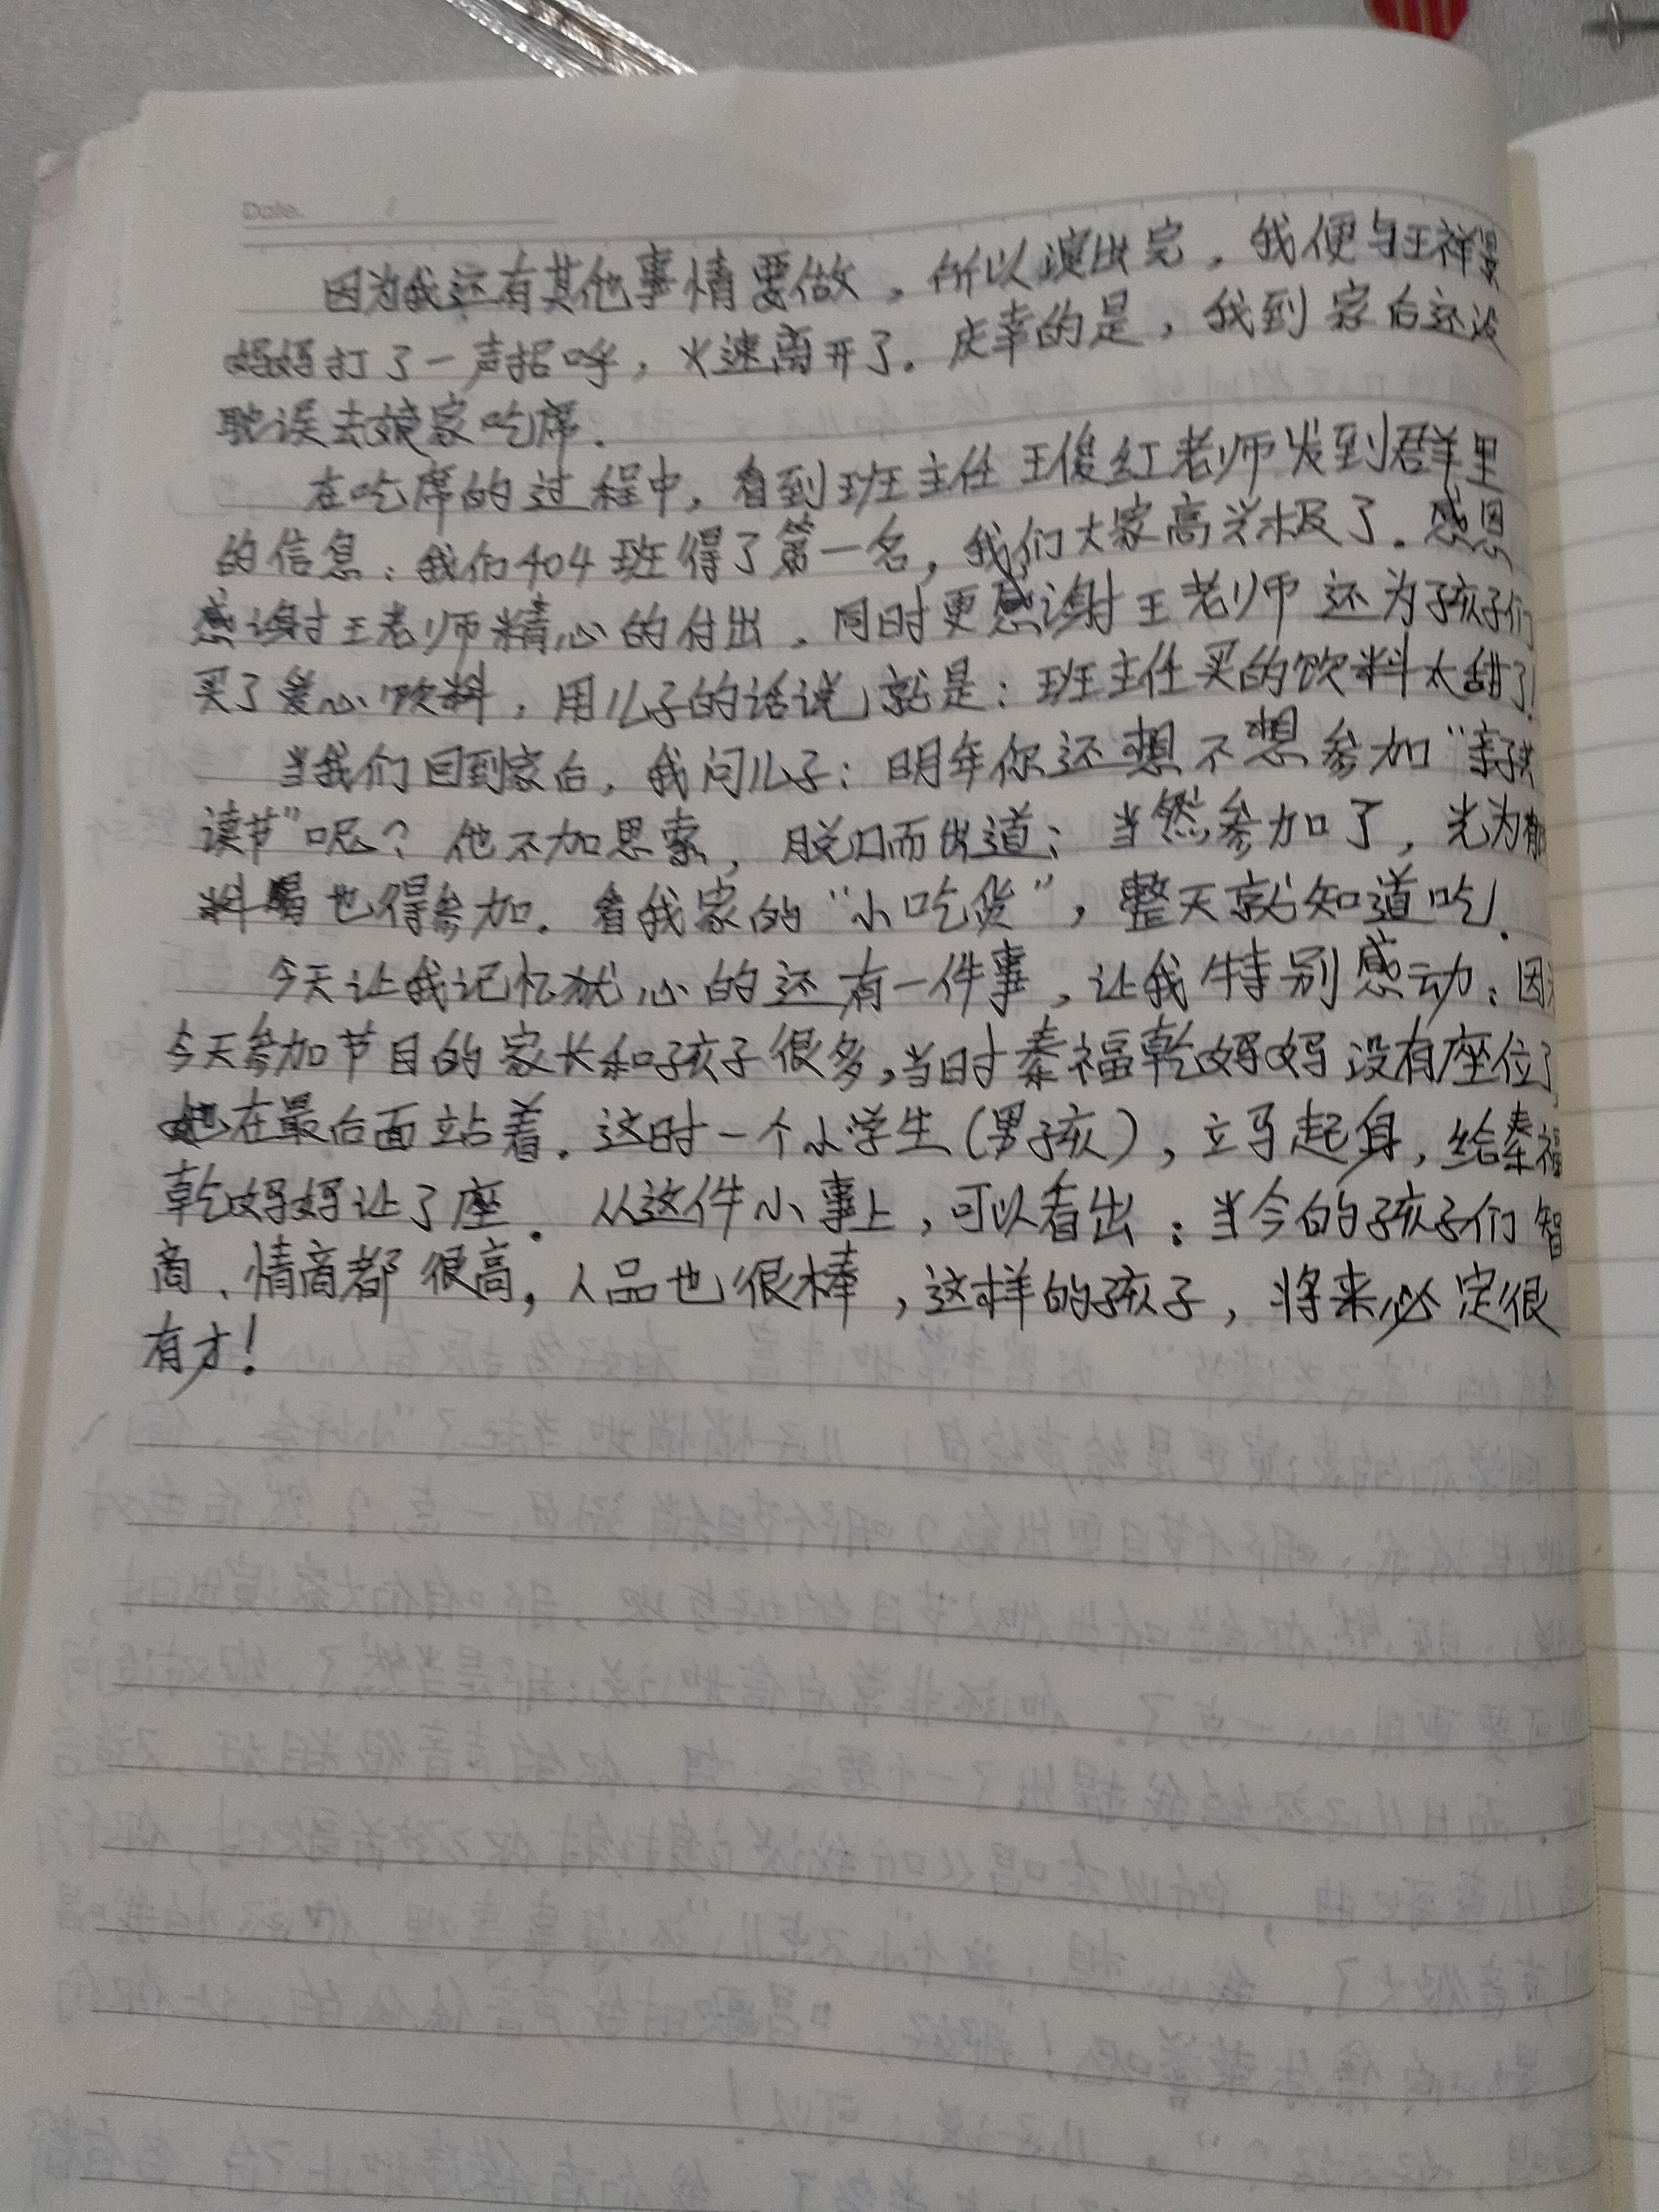 Date.
因为我还有其他事情要做，所以演出完，我便与王祥
妈妈打了一声招呼，火速离开了。庆幸的是，我到家后还没
耽误去娘家吃席。
在吃席的过程中，看到班主任王俊红老师发到群里
的信息：我们404班得了第一名，我们大家高兴极了。感恩
感谢王老师精心的付出，同时更感谢王老师还为孩子们
买了爱心饮料，用儿子的话说就是：班主任买的饮料太甜了！
当我们回到家后，我问儿子：明年你还想不想参加“亲子共
读节”呢？他不加思索，脱口而出道：当然参加了，光为有饮
料喝也得参加。看我家的“小吃货”，整天就知道吃。
今天让我记忆犹心的还有一件事，让我特别感动：因为
今天参加节目的家长和孩子很多，当时秦福乾妈妈没有座位了
她在最后面站着。这时一个小学生（男孩），立马起身，给秦福
乾妈妈让了座。从这件小事上，可以看出：当今的孩子们智
商、情商都很高，人品也很棒，这样的孩子，将来必定很
有才！